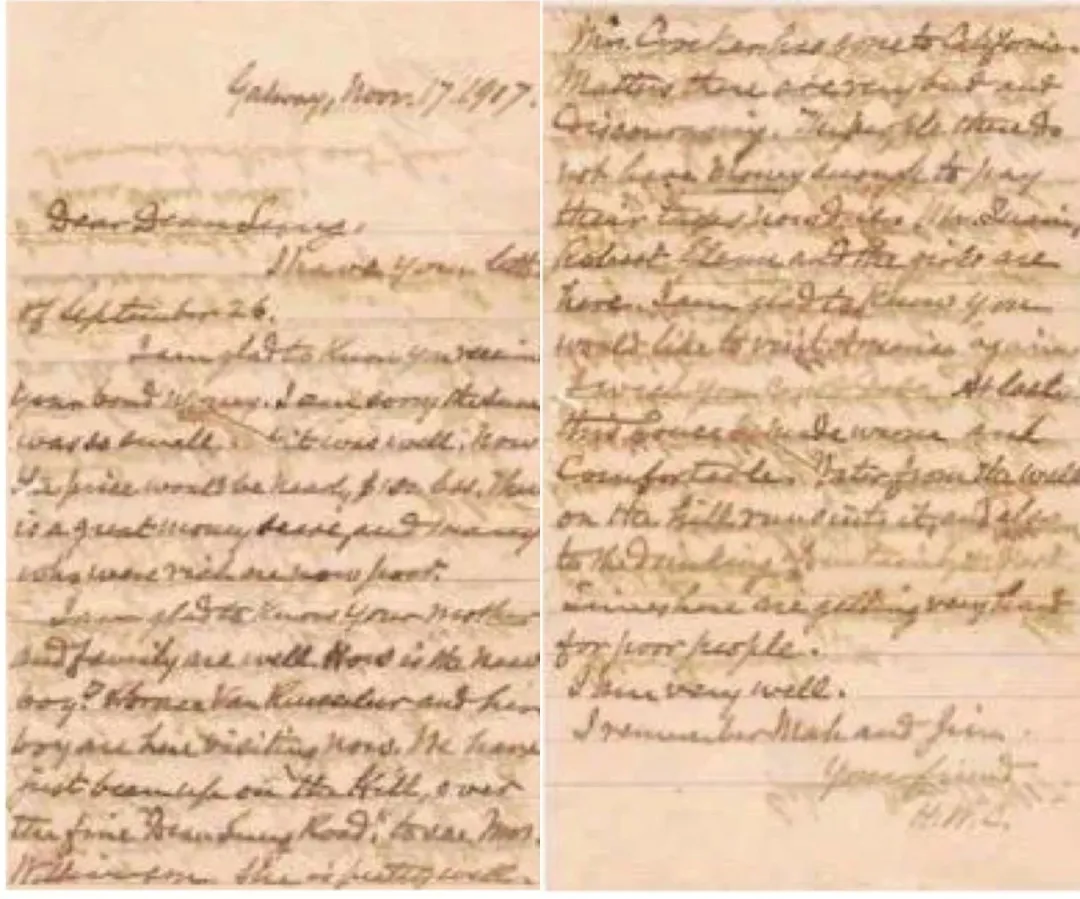 Galway, Nov. 17. 1907.
Dear Dean Lung,
I have your lett
of September 26.
I am glad to know you receive
your bond money. I am sorry the sum
was so small. it was well. Now
The price would be nearly $150 less. There
is a great money scare, and many
who were rich are now poor.
I am glad to know your mother
and family are well. How is the new
boy? Horace Van Rensselaer and her
boy are here visiting now. We have
just been up on the Hill, over
the fine "Dean Lung Road", to see Mrs.
Wilkinson. She is pretty well.
Mrs. Crocker has gone to California.
Matters there are very bad and
discouraging. The people there do
not have money enough to pay
their taxes now due. Mr.
and the girls are
here. I am glad to know you
would like to visit America again
At last
this house is made warm and
Comfortable. Water from the well
on the hill runs into it, and also
to the
Times here are getting very hard
for poor people.
I am very well.
I remember Mah and Jim.
Your friend
H.W.C.